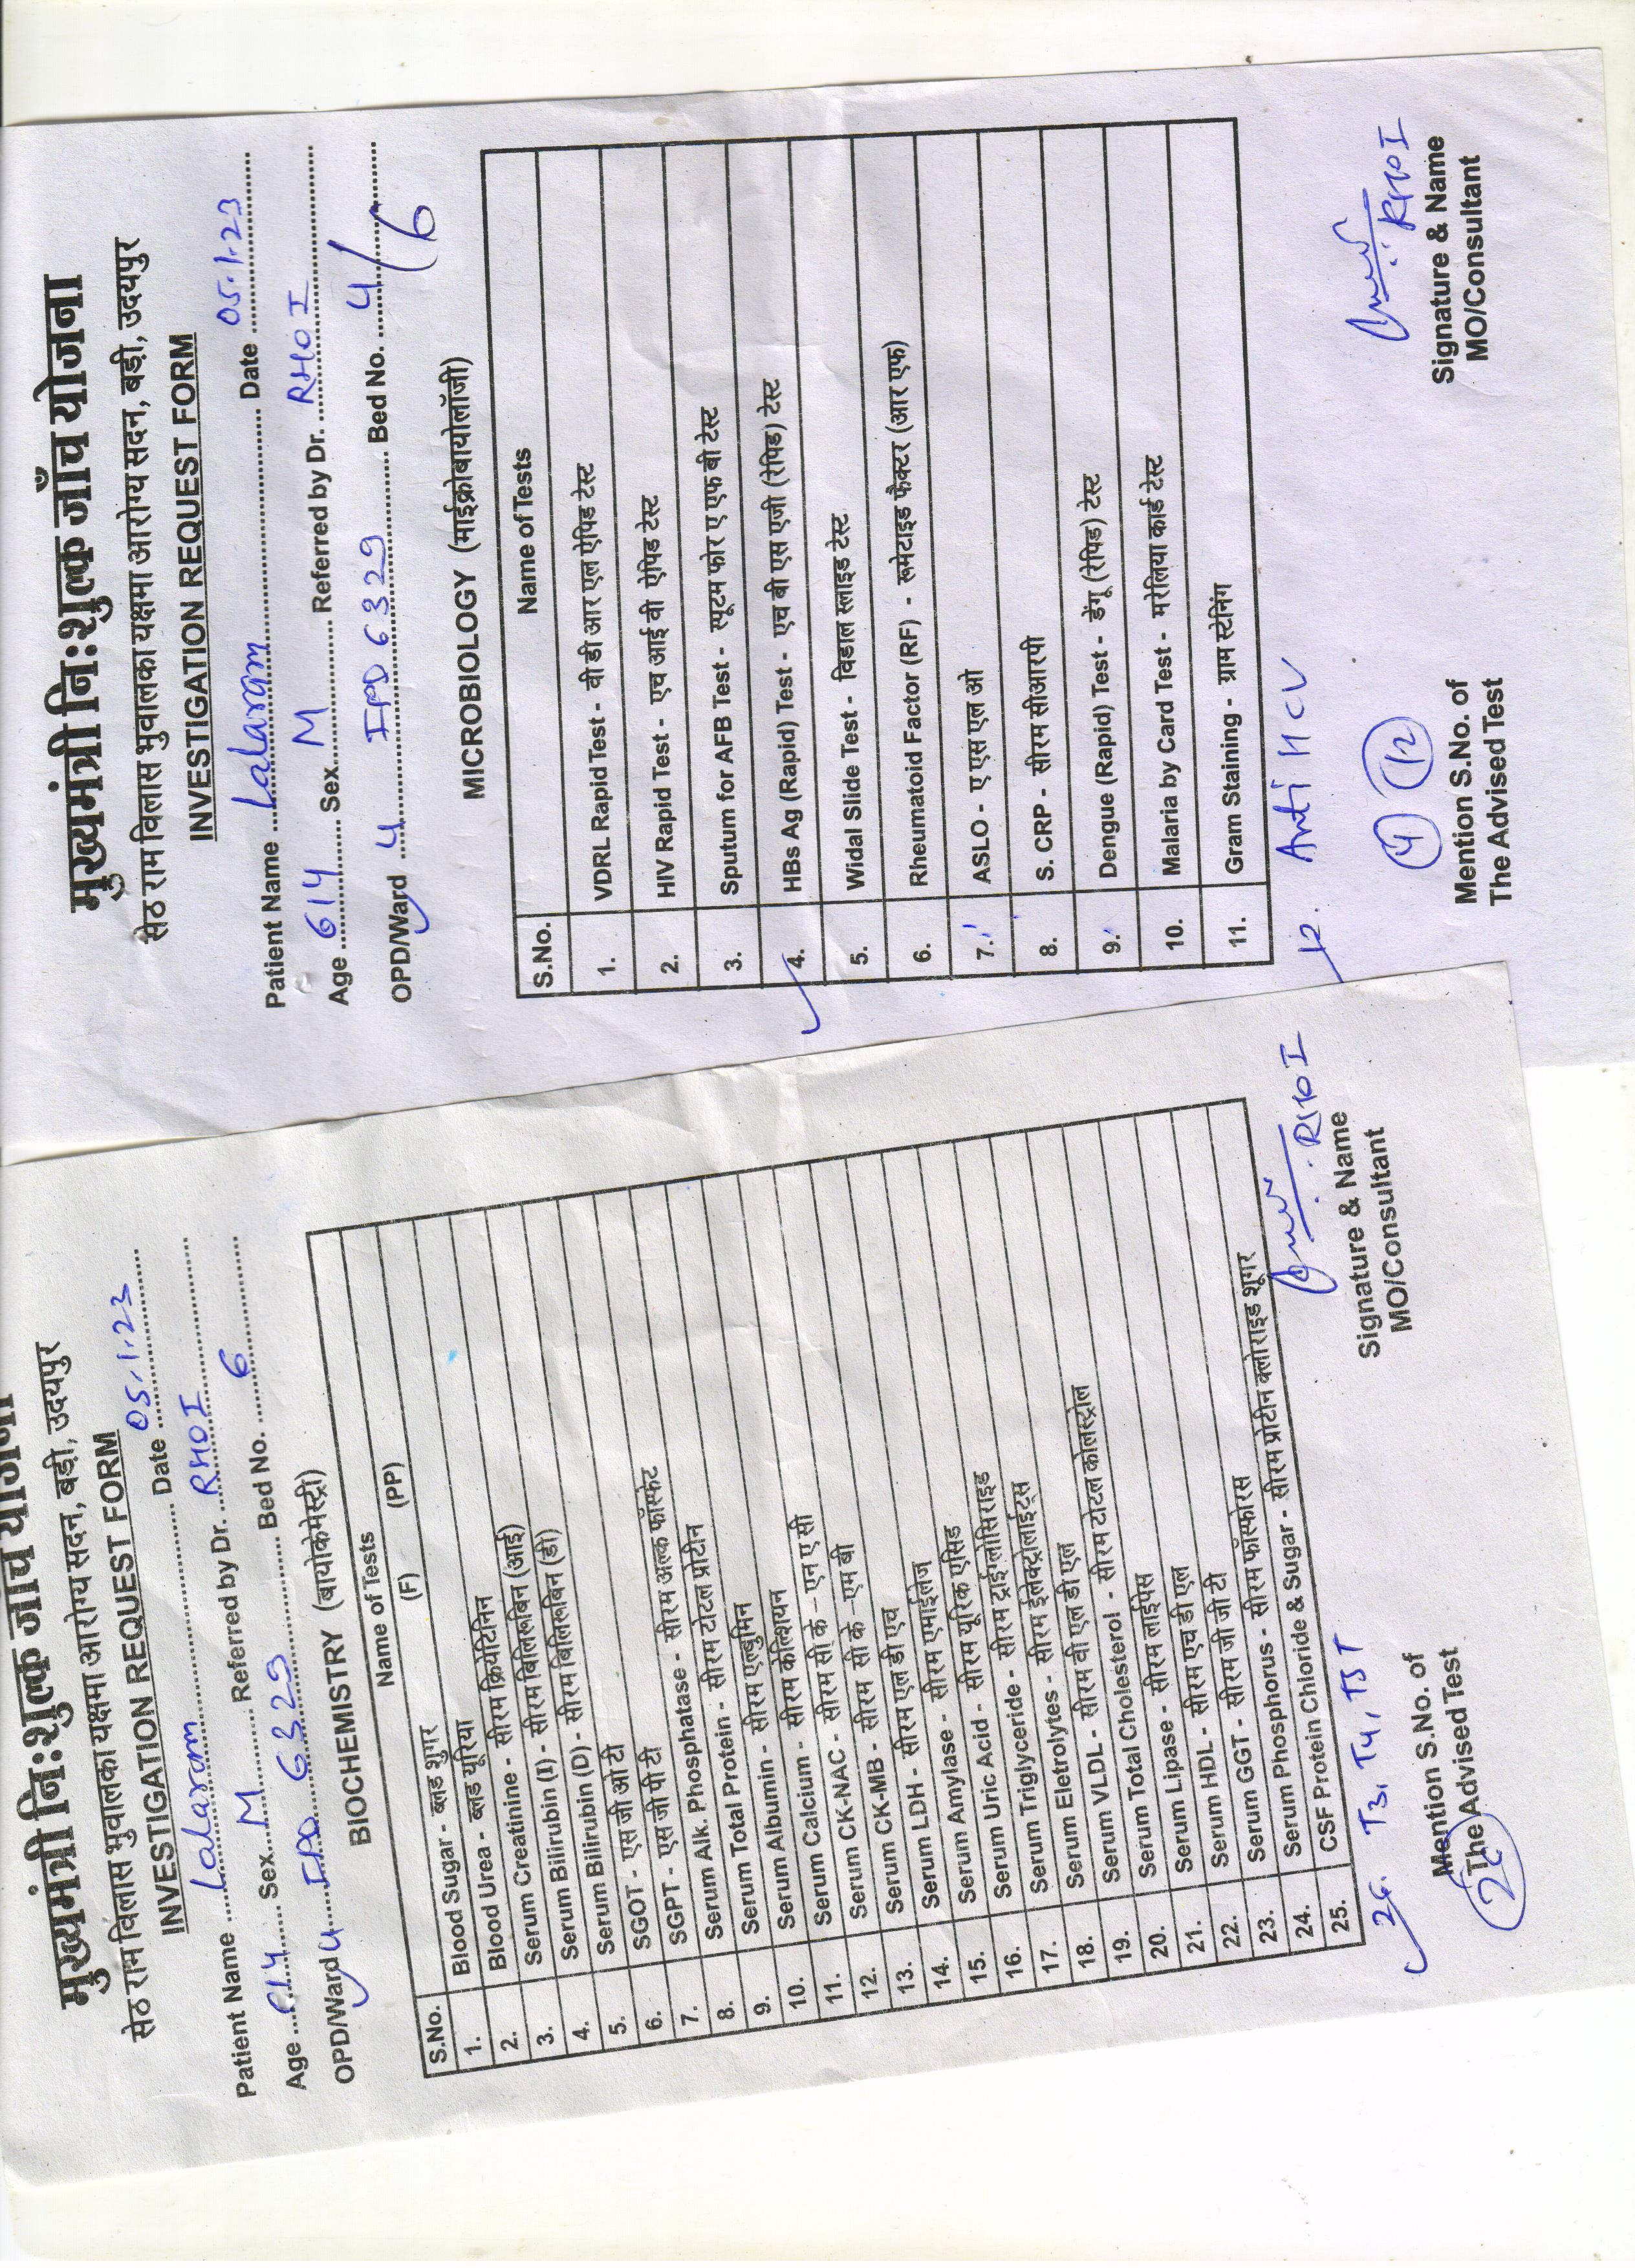 मुख्यमंत्री नि:शुल्क जाँच योजना
सेठ राम विलास भुवालका यक्षमा आरोग्य सदन, बड़ी, उदयपुर
INVESTIGATION REQUEST FORM
Patient Name Lalaram Date 05.1.23
Age Sex M Referred by Dr. RHOI
OPD/Ward 4 IPD 6329 Bed No. 6
BIOCHEMISTRY (बायोकेमेस्ट्री)
S.No. Name of Tests
(F) (PP)
1. Blood Sugar - ब्लड शुगर
2. Blood Urea - ब्लड यूरिया
3. Serum Creatinine - सीरम क्रियेटिनिन
4. Serum Bilirubin (I) - सीरम बिलिरूबिन (आई)
5. Serum Bilirubin (D) - सीरम बिलिरूबिन (डी)
6. SGOT - एस जी ओ टी
7. SGPT - एस जी पी टी
8. Serum Alk. Phosphatase - सीरम अल्क फॉस्फेट
9. Serum Total Protein - सीरम टोटल प्रोटीन
10. Serum Albumin - सीरम एल्बुमिन
11. Serum Calcium - सीरम केल्शियन
12. Serum CK-NAC - सीरम सी के - एन ए सी
13. Serum CK-MB - सीरम सी के - एम बी
14. Serum LDH - सीरम एल डी एच
15. Serum Amylase - सीरम एमाईलेज
16. Serum Uric Acid - सीरम यूरिक एसिड
17. Serum Triglyceride - सीरम ट्राईग्लोसिराइड
18. Serum Eletrolytes - सीरम ईलेक्ट्रोलाईट्स
19. Serum VLDL - सीरम वी एल डी एल
20. Serum Total Cholesterol - सीरम टोटल कोलस्ट्रोल
21. Serum Lipase - सीरम लाईपेस
22. Serum HDL - सीरम एच डी एल
23. Serum GGT - सीरम जी जी टी
24. Serum Phosphorus - सीरम फॉस्फोरस
25. CSF Protein Chloride & Sugar - सीरम प्रोटीन क्लोराइड शूगर
26. T3, T4, TST
26
Mention S.No. of
The Advised Test
RHOI
Signature & Name
MO/Consultant
मुख्यमंत्री नि:शुल्क जाँच योजना
सेठ राम विलास भुवालका यक्षमा आरोग्य सदन, बड़ी, उदयपुर
INVESTIGATION REQUEST FORM
Patient Name Lalaram Date 05.1.23
Age 61Y Sex M Referred by Dr. RHOI
OPD/Ward 4 IPD 6329 Bed No. 4/6
MICROBIOLOGY (माईक्रोबायोलॉजी)
S.No. Name of Tests
1. VDRL Rapid Test - वी डी आर एल ऐपिड टेस्ट
2. HIV Rapid Test - एच आई वी ऐपिड टेस्ट
3. Sputum for AFB Test - स्पूटम फोर ए एफ बी टेस्ट
4. HBs Ag (Rapid) Test - एच बी एस एजी (रेपिड) टेस्ट
5. Widal Slide Test - विडाल स्लाइड टेस्ट
6. Rheumatoid Factor (RF) - रूमेटाइड फैक्टर (आर एफ)
7. ASLO - ए एस एल ओ
8. S. CRP - सीरम सीआरपी
9. Dengue (Rapid) Test - डेंगू (रेपिड) टेस्ट
10. Malaria by Card Test - मरेलिया कार्ड टेस्ट
11. Gram Staining - ग्राम स्टेनिंग
12. Anti HCV
4 12
Mention S.No. of
The Advised Test
RHOI
Signature & Name
MO/Consultant